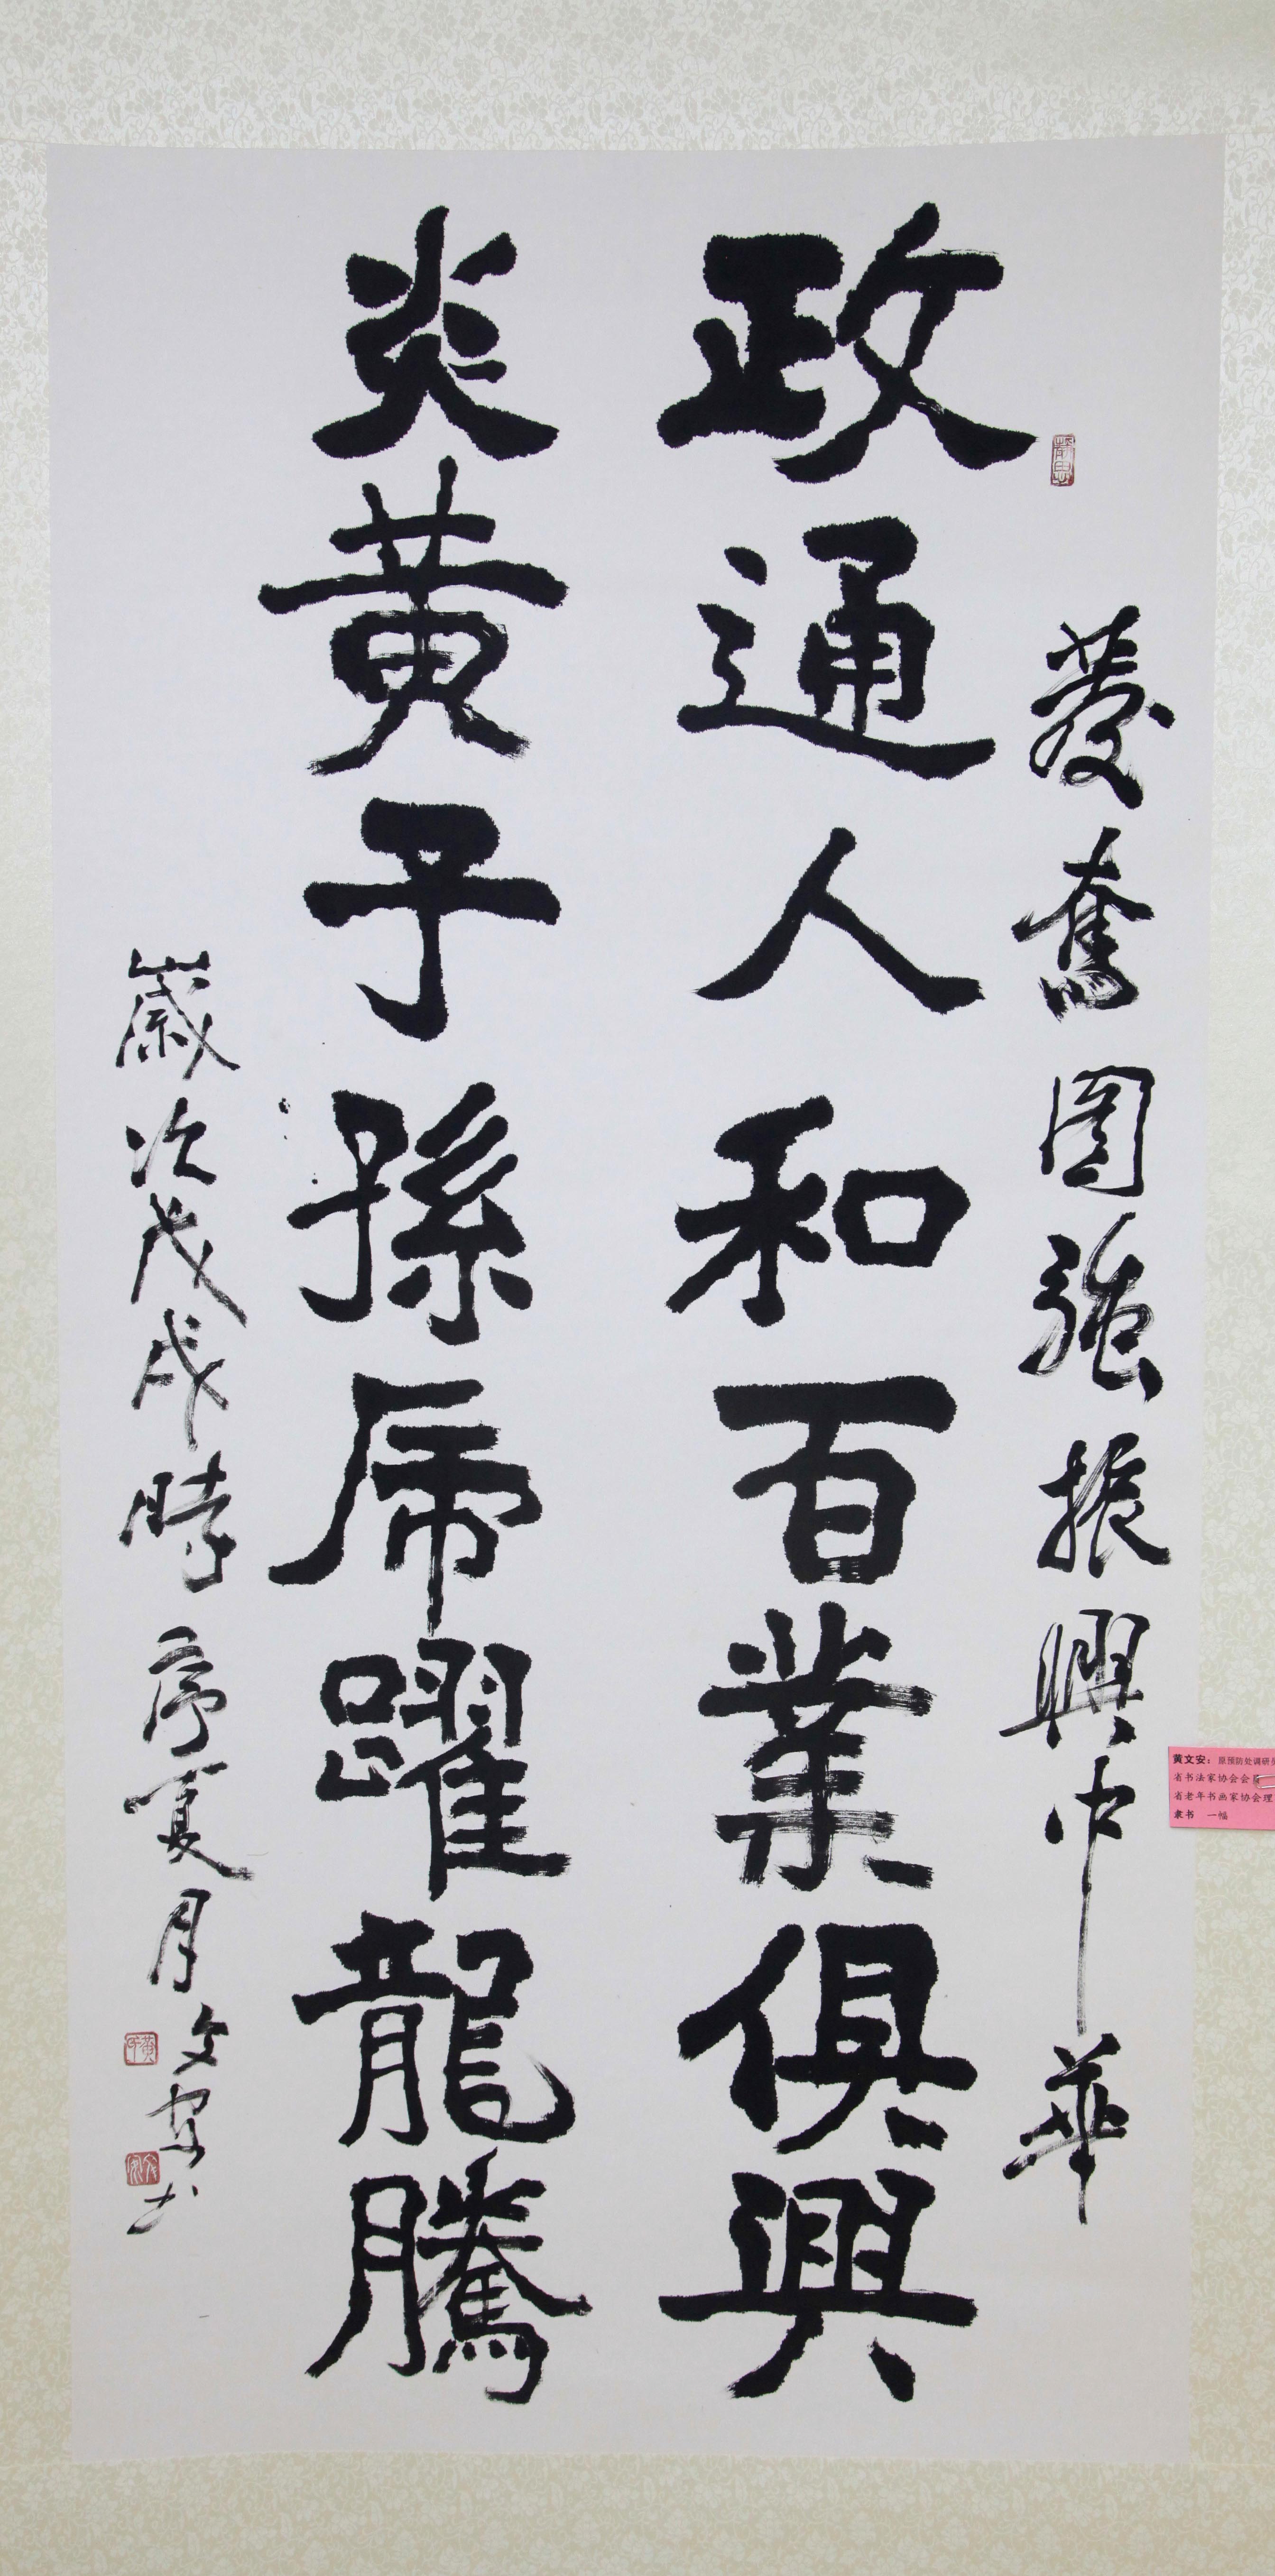 發奮圖強振興中華
政通人和百業俱興
炎黄子孫虎躍龍騰
歲次戊戌時序夏月文安书
黄文安：原预防处调研
省书法家协会会
省老年书画家协会理
隶书 一幅